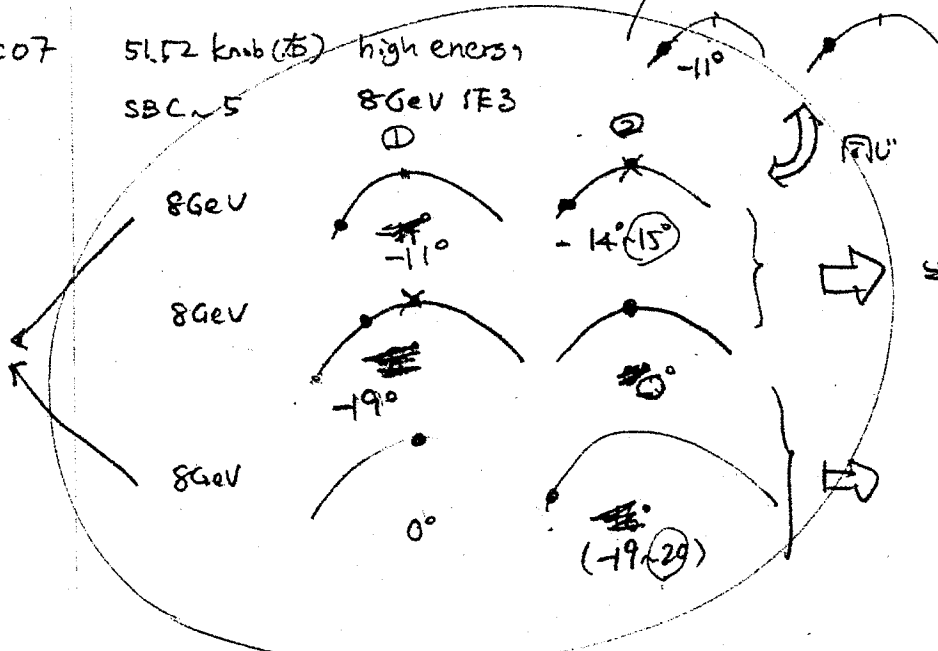 :07 51.52 knob(右) high energy
-11°
SBC~5 8GeV 1E3
① ②
同じ
8GeV -11° -14°~-15°
8GeV -19° 0°
8GeV 0° (-19~20)